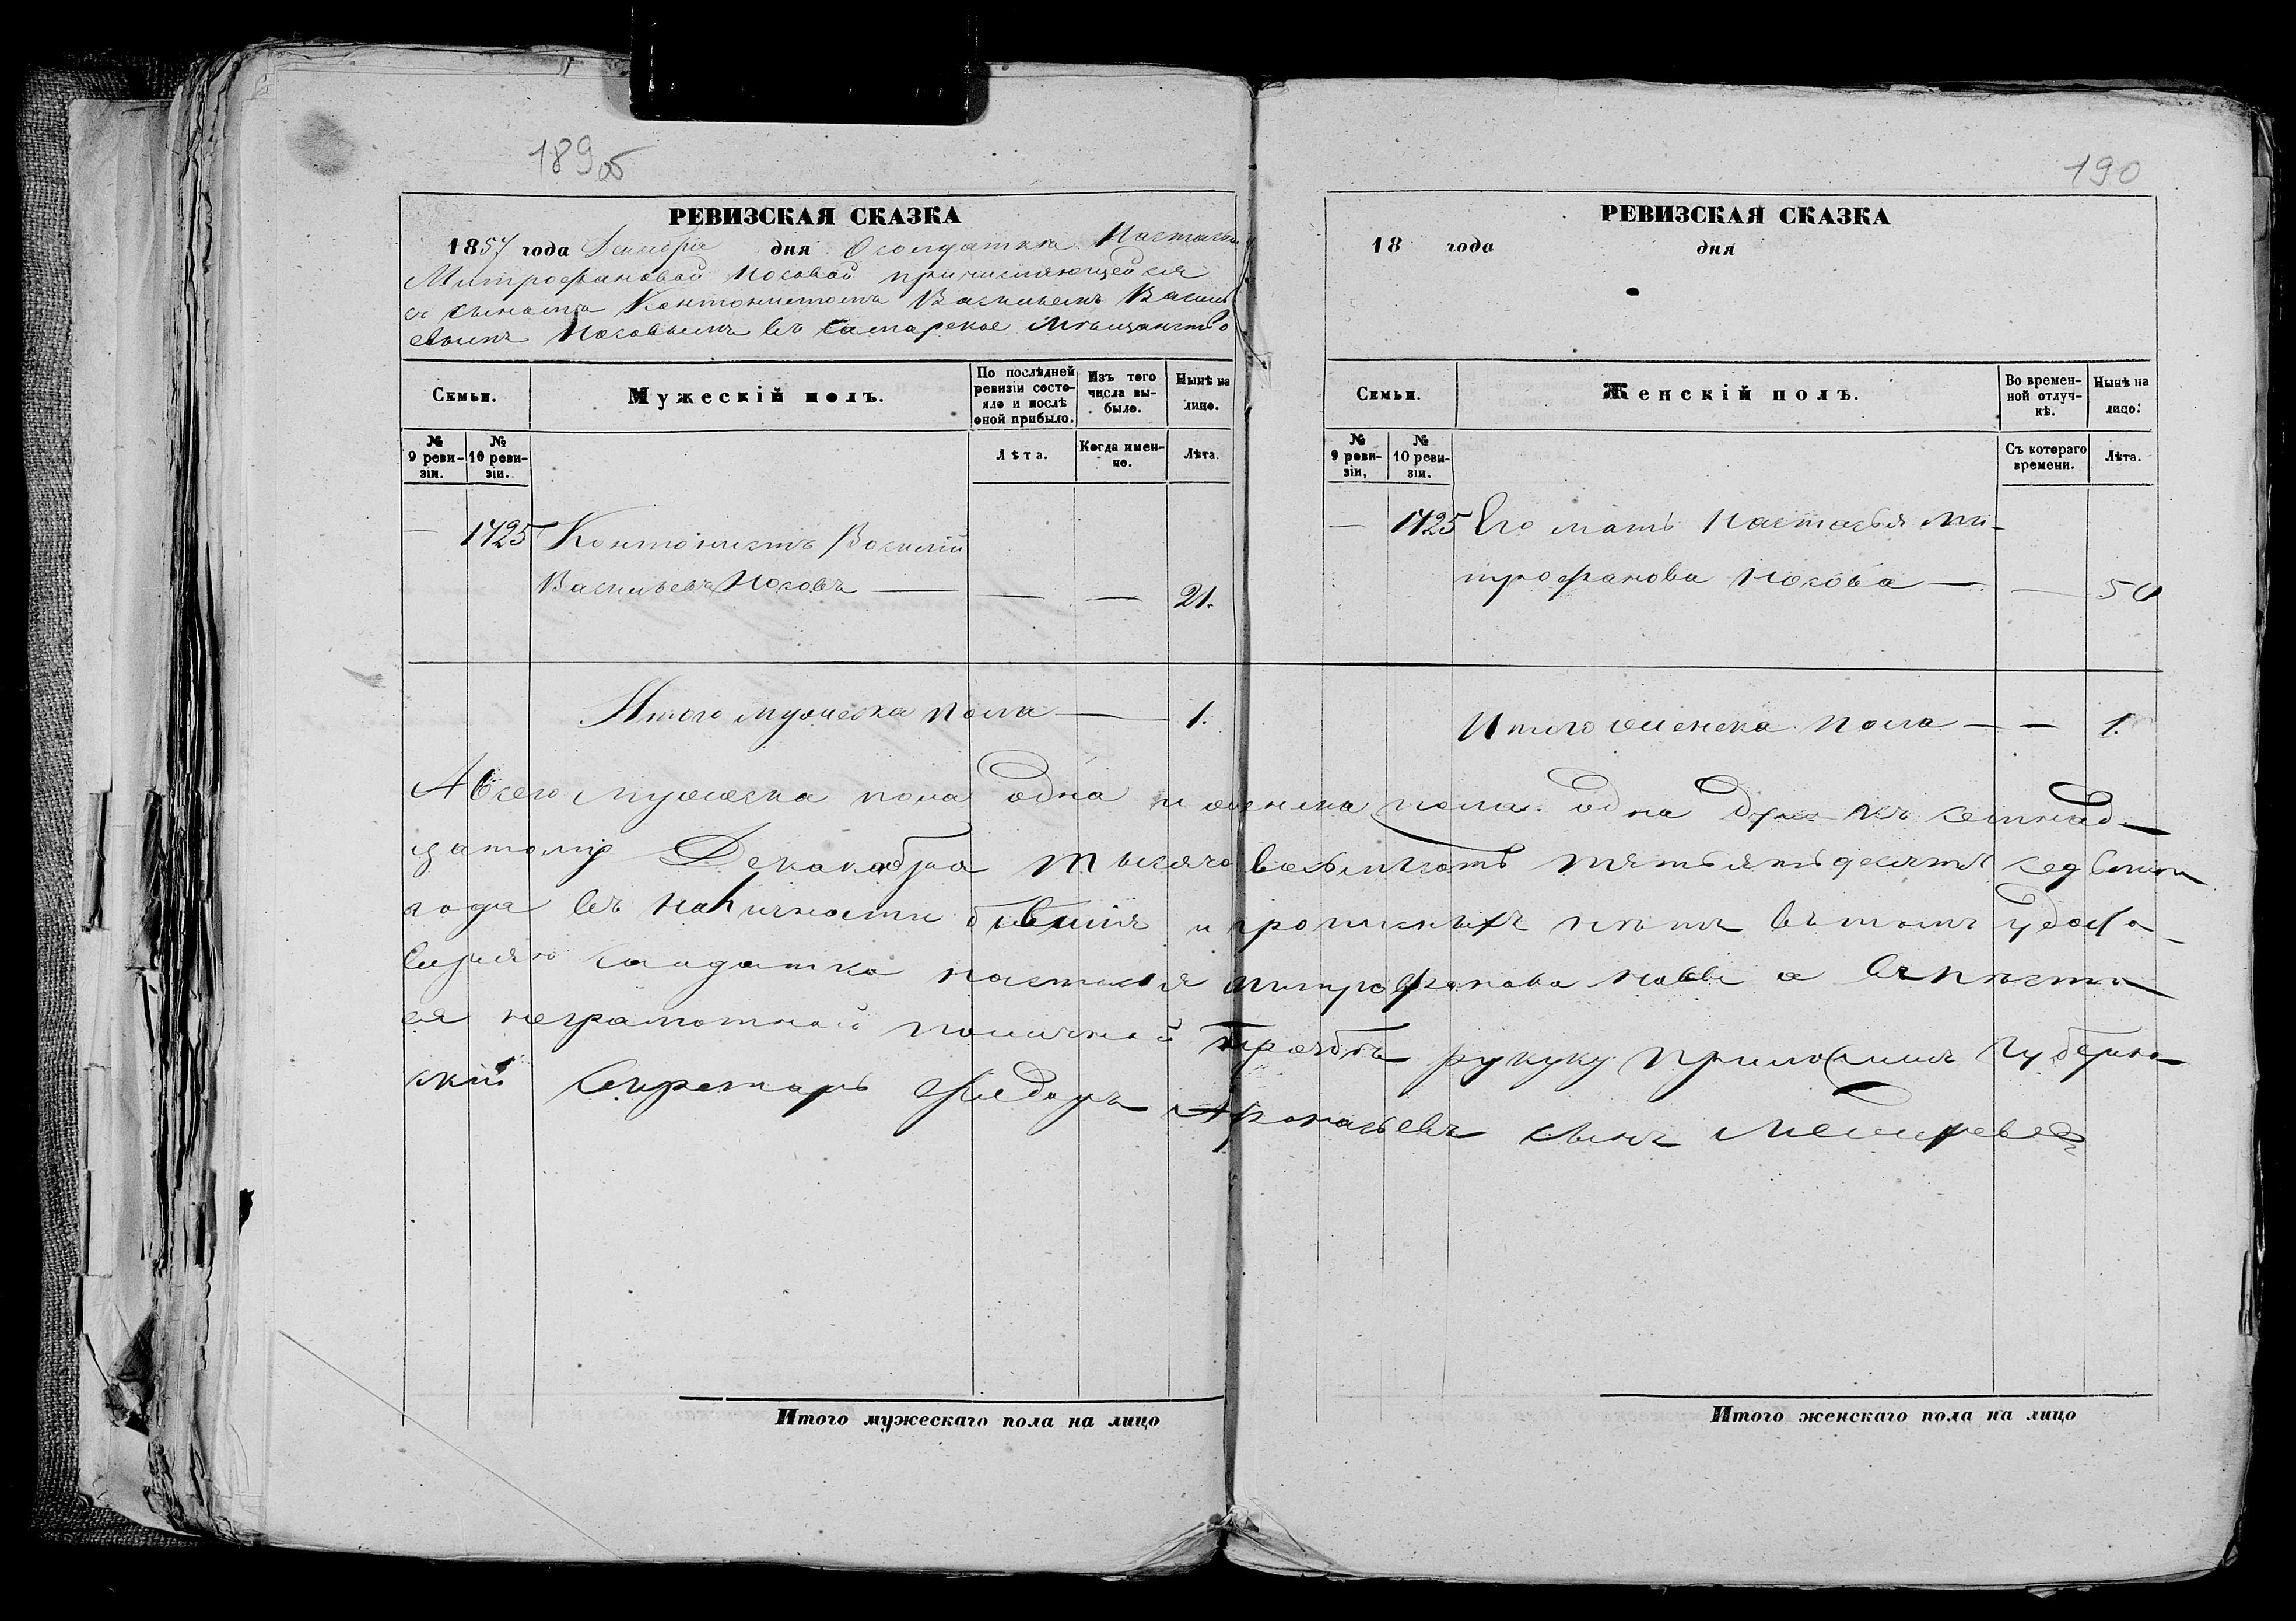 189 об
РЕВИЗСКАЯ СКАЗКА
1857 года Декабря дня О солдатки Настасьи
Митрофановой Носовой причисляющейся
съ сыномъ Кантонистомъ Васильемъ Василь
евымъ Носовымъ въ Самарское Мѣщанство
Семьи.
Мужескій полъ.
По послѣдней ревизіи состояло и послѣ оной прибыло.
Изъ того числа выбыло.
Нынѣ на лице.
№ 9 ревизіи.
№ 10 ревизіи.
Лѣта.
Когда именно.
Лѣта.
— 1725 Контонистъ Василій
Васильевъ Носовъ — — — 21.
Итого мужеска пола — 1.
190
РЕВИЗСКАЯ СКАЗКА
18 года дня
Семьи.
Женскій полъ.
Во временной отлучкѣ.
Нынѣ на лицо.
№ 9 ревизіи,
№ 10 ревизіи.
Съ котораго времени.
Лѣта.
— 1725 Его мать Настасья Ми-
трофанова Носова — — 50
Итого женска пола — — 1.
А всего мужеска пола одна и женска пола одна къ семнад-
цатому Декакабра тысяча восемьсотъ пятьдесятъ седьмом
года въ наличности бывшія и прописныхъ нѣтъ въ томъ удосто-
веряю Салдатка настасья митрофанова а вместо
ея неграмотной поличной прозбѣ рукуку приложилъ Губерн-
скій Секретарь Федоръ Афонасьевъ сынъ
Итого мужескаго пола на лицо
Итого женскаго пола на лицо